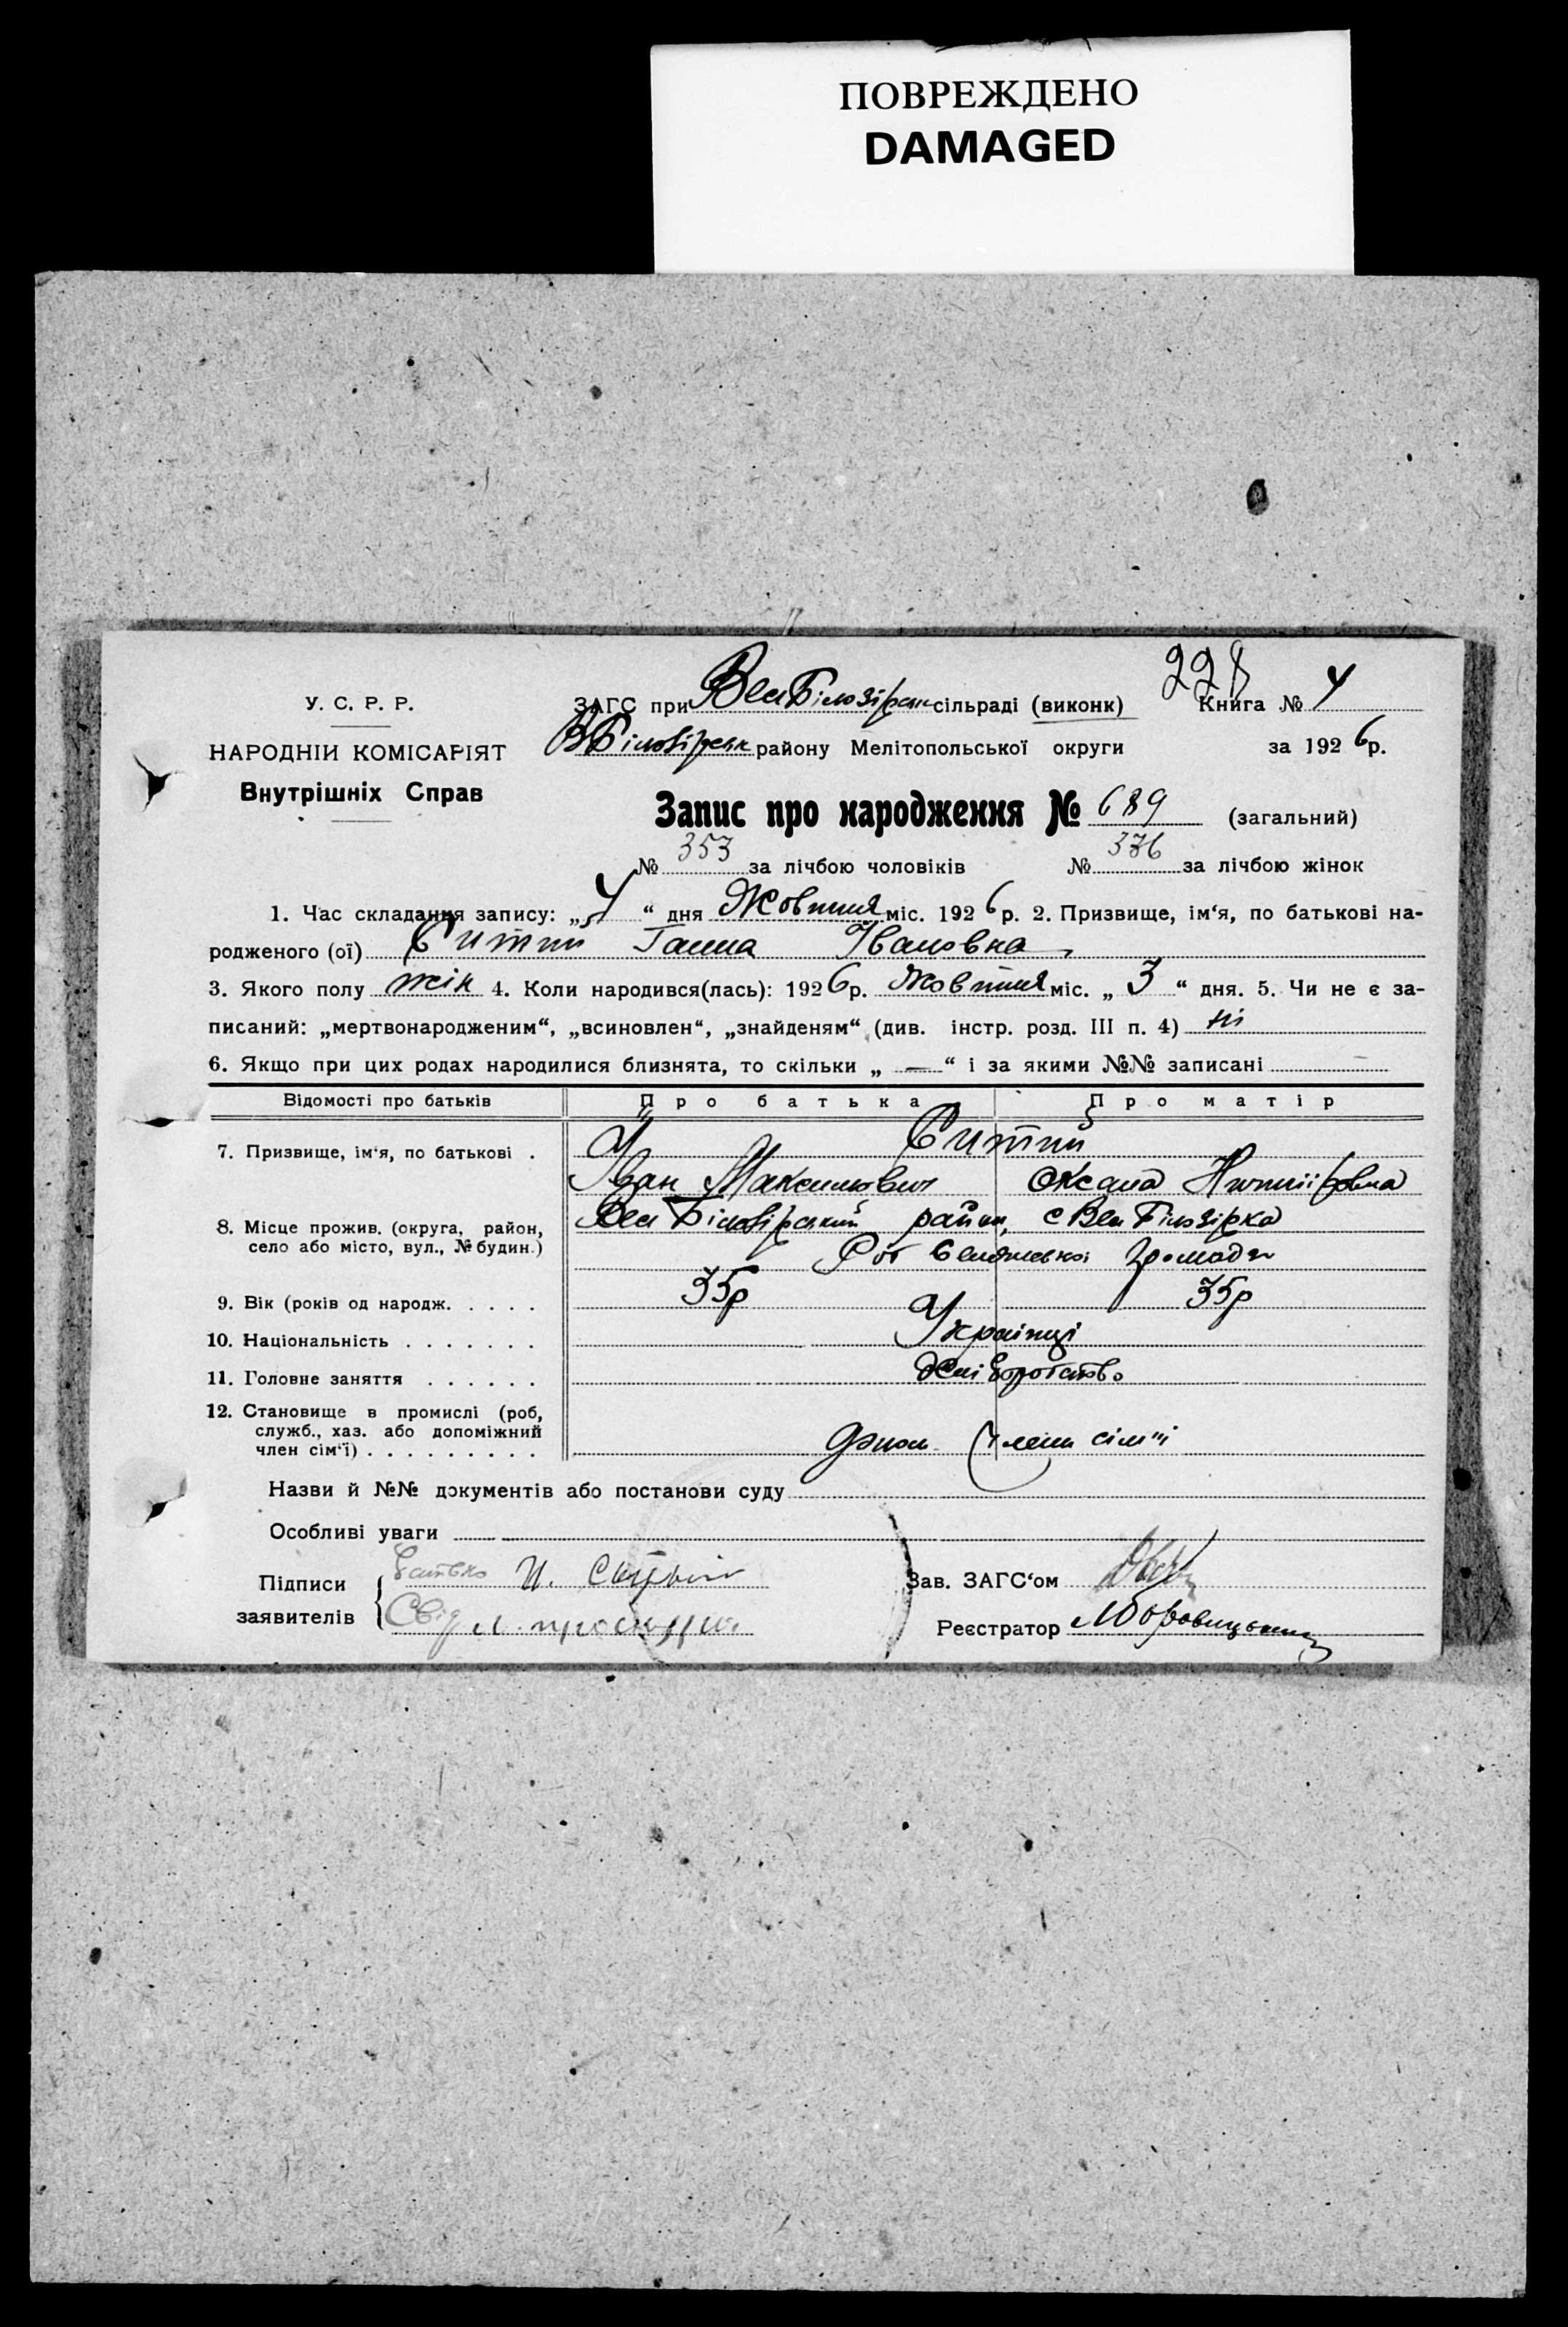 ПОВРЕЖДЕНО
DAMAGED
228
У. С. Р. Р.
ЗАГС при Вел Білозірськ сільраді (виконк) Книга № 4
НАРОДНІЙ КОМІСАРІЯТ
В Білозірськ району Мелітопольської округи за 1926 р.
Внутрішніх Справ
Запис про народження № 689 (загальний)
№ 353 за лічбою чоловіків № 336 за лічбою жінок
1. Час складання запису: „ 4 “ дня Жовтня міс. 1926 р. 2. Призвище, ім‘я, по батькові на-
родженого (ої) Ситий Ганна Івановна
3. Якого полу жін 4. Коли народився(лась): 1926 р. Жовтня міс. „ 3 “ дня. 5. Чи не є за-
писаний: „мертвонародженим“, „всиновлен“, „знайденям“ (див. інстр. розд. III п. 4) ні
6. Якщо при цих родах народилися близнята, то скільки „ — “ і за якими №№ записані
Відомості про батьків Про батька Про матір
7. Призвище, ім‘я, по батькові . Ситий
Іван Максимович Оксана
8. Місце прожив. (округа, район, село або місто, вул., № будин.) Вел Білозірський район, с Вел Білозірка
громади
9. Вік (років од народж. . . . . 35р 35р
10. Національність . . . . . . . Українці
11. Головне заняття . . . . . . Хліборобство
12. Становище в промислі (роб, служб., хаз. або допоміжний член сім‘ї) . . . . . . . . . Допом. члени сім'ї
Назви й №№ документів або постанови суду
Особливі уваги
Підписи заявителів Батько И. Сытый
Свід
Зав. ЗАГС‘ом
Реєстратор